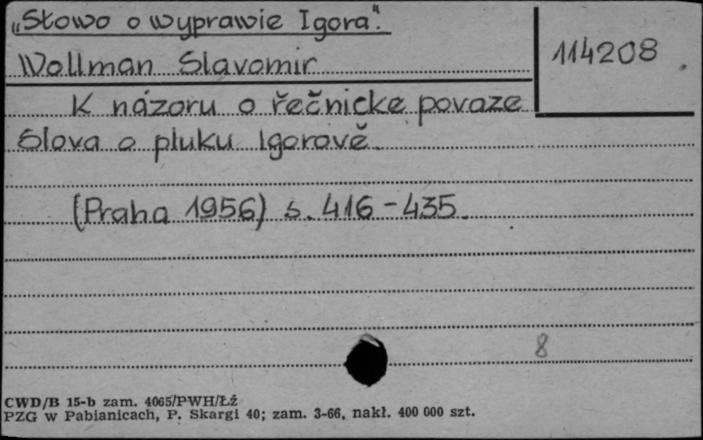 „Słowo o wyprawie Igora".
Wollman Slavomir
114208
K názoru o řečnicke povaze
Slova o pluku Igorově.
(Praha 1956) s. 416-435.
8
CWD/B 15-b zam. 4065/PWH/Łź
PZG w Pabianicach, P. Skargi 40; zam. 3-66, nakł. 400 000 szt.